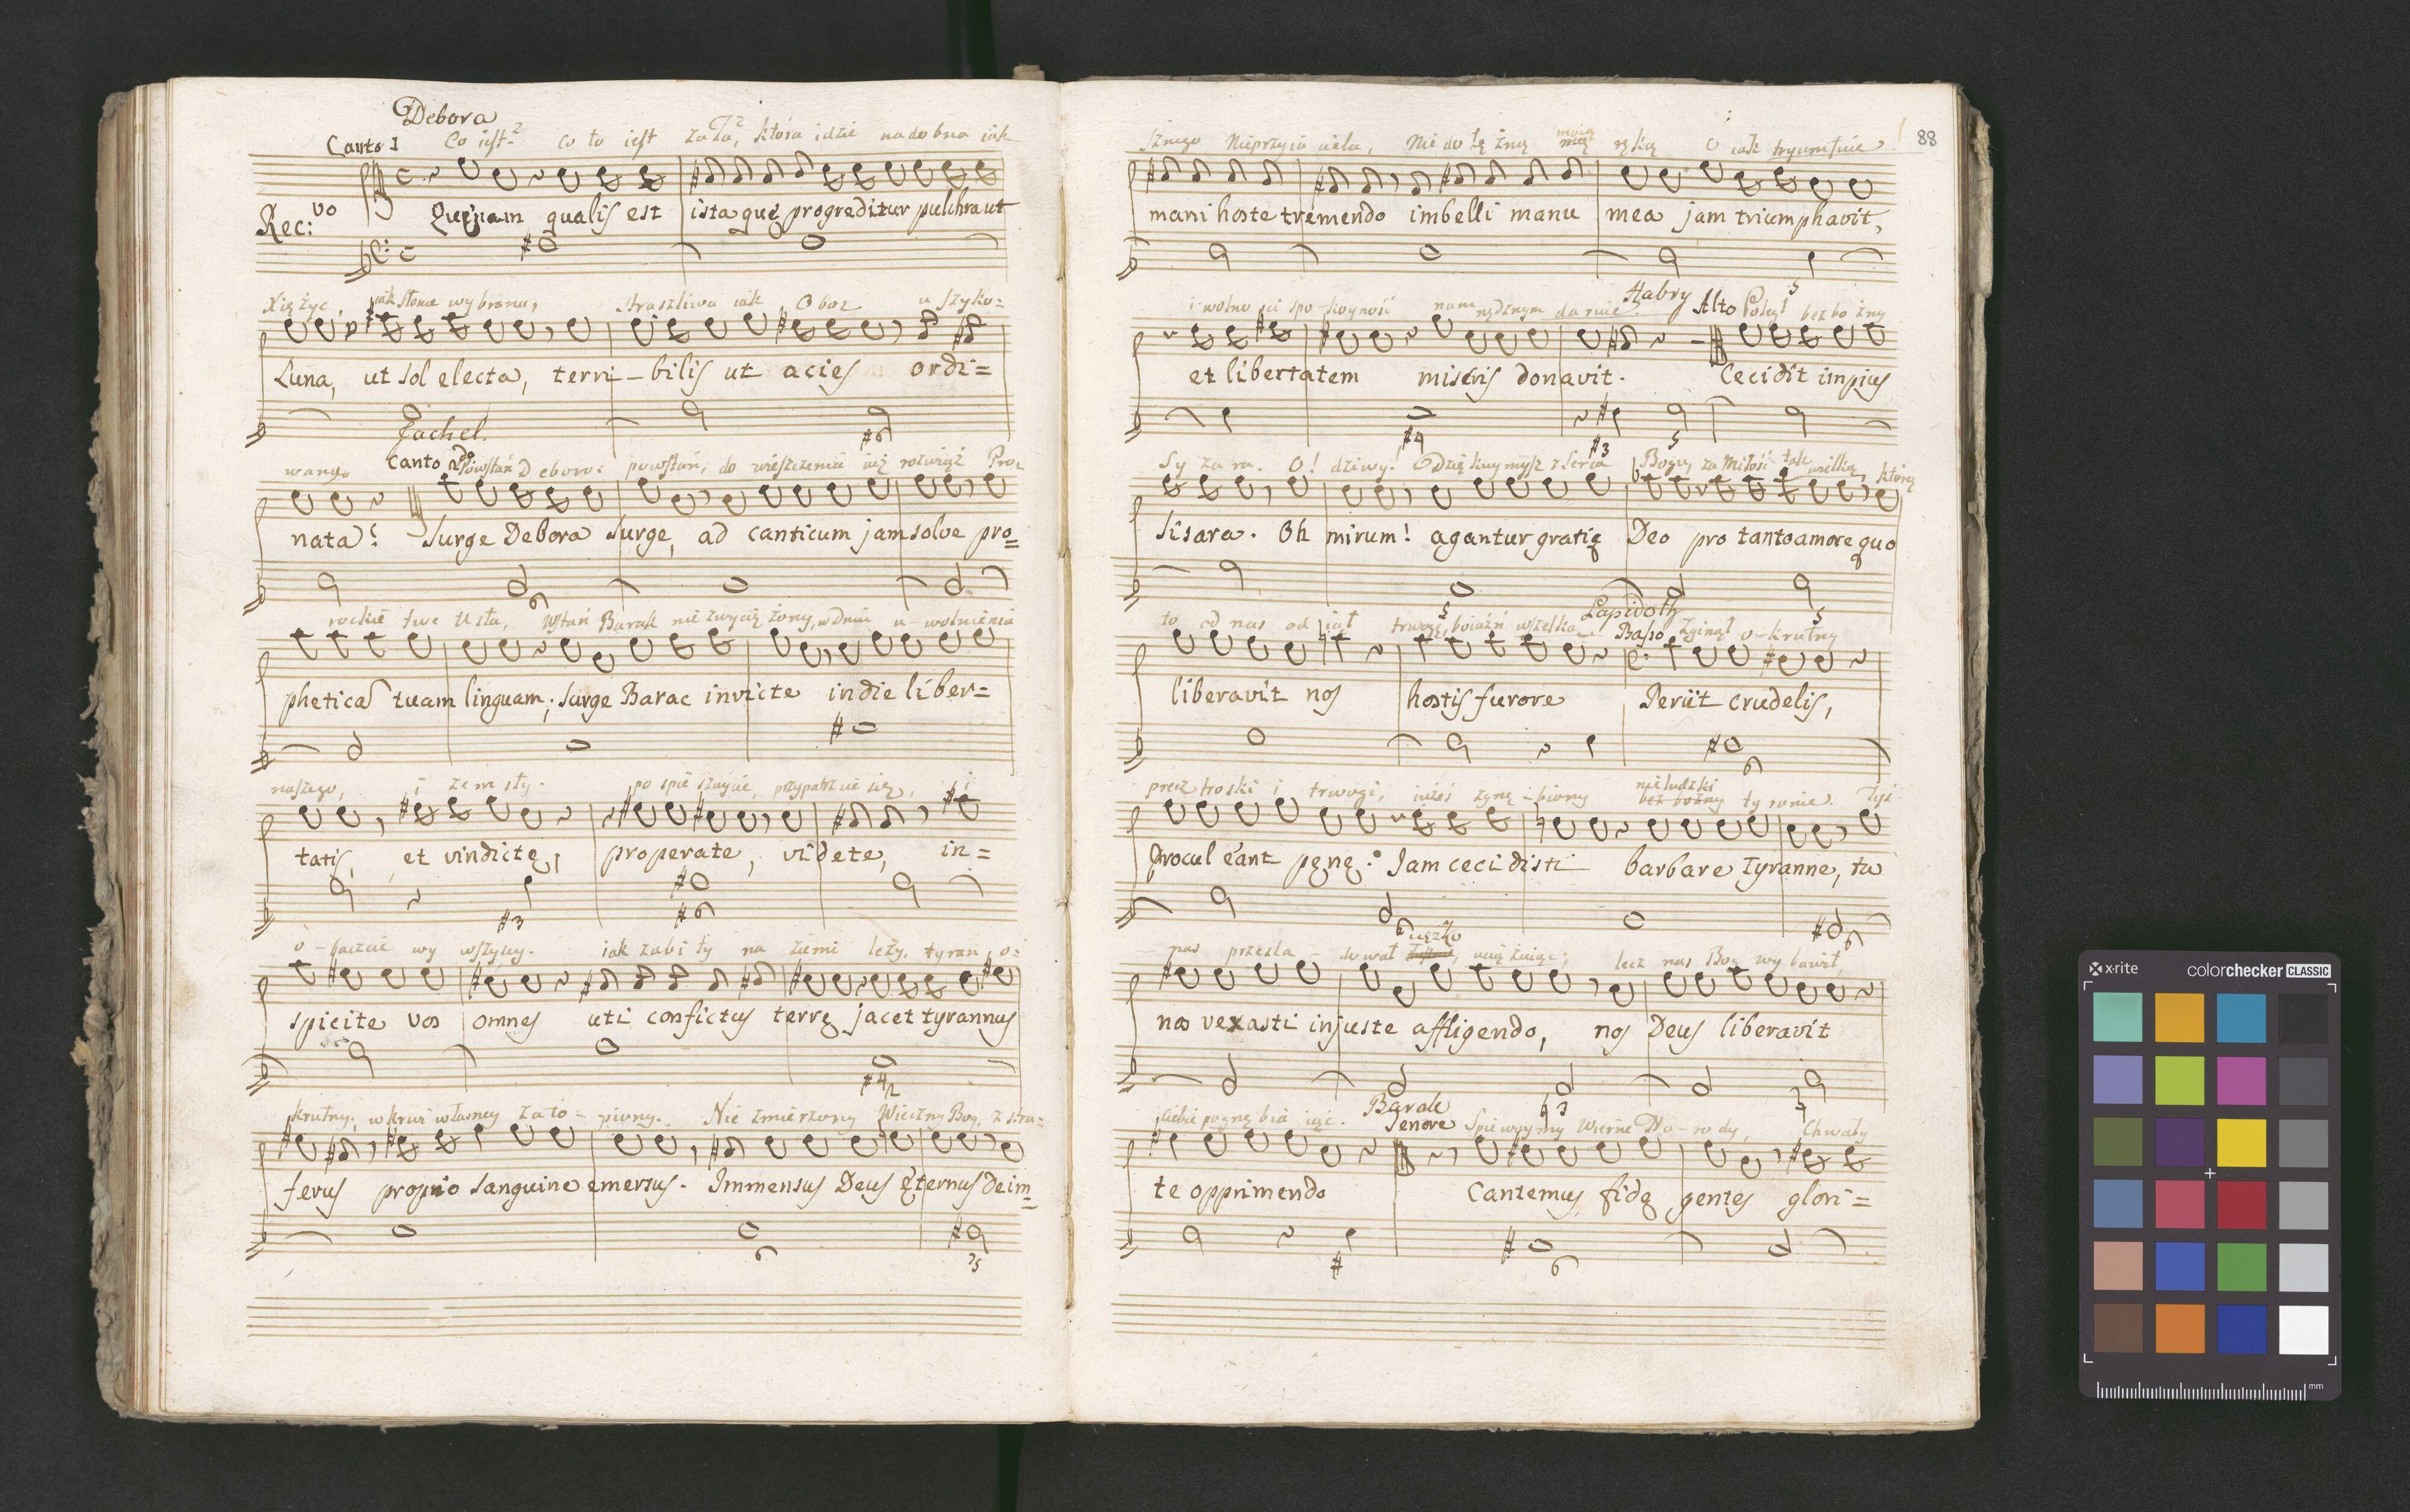 Debora
Canto 1 Co iest? co to iest za ta? która idzie nadobna iak
Rec:vo Quenam qualis est ista que progreditur pulchra ut
Xiężyc, iak słonie wybrana, straszliwa iak Oboz uszyko=
Luna, ut sol electa, terri-bilis ut acies ordi=
Jachel.
wany. Canto 2do Powstań Deboro: powstań, do wieszczenia iuż rozwiąż Pro=
nata? Surge Debora surge, ad canticum jam solve pro=
rockie twe Usta, Wstań Barak nie zwyciężony, w Dniu u-wolnienia
phetica tuam linguam; surge Barac invicte in die liber=
naszego, i zemsty. pospieszaycie, przypatrzcie się, i
tatis, et vindictę, properate, videte, in=
o-baczcie wy wszyscy. iak zabity na ziemi leży, tyran, o=
spicite vos omnes uti confictus terrę jacet tyrannus
krutny, w krwi własney zato-piony. Nie zmierzony Wieczny Bog, z stra=
ferus proprio sanguine emersus. Immensus Deus ęternus de im=
88
sznego Nieprzyiaciela, Nie dołężną moią ręką O iak tryumfuie!
mani hoste tremendo imbelli manu mea jam triumphavit,
i wolno ści spo-koyność nam nędznym daruie. Habry Alto Poległ bezbożny
et libertatem miseris donavit. Cecidit impius
Syzara. O! dziwy! Dziękuymyż z serca Bogu, za Miłość tak wielką, którą
Sisara. Oh mirum! agantur gratię Deo pro tanto amore quo
Lapidoth
to od nas odiął trwogę, boiaźń wszelką Basso Zginął o-krutny
liberavit nos hostis furore Periit crudelis,
precz troski i trwogi, iużeś zgnę-biony nieludzki bez bożny tyranie. Tyś
procul eant pęnę. Jam cecidisti barbare Tyranne, tu
nas przesla-dował ciężko uciążaiąc; lecz nas Bog wybawił,
nos vexasti injuste affligendo, nos Deus liberavit
ciebie pognębia iąc. Barak Tenore Spiewaymy Wierne Na-rody, Chwały
te opprimendo Cantemus, fidę gentes glori=
x-rite colorchecker CLASSIC
mm